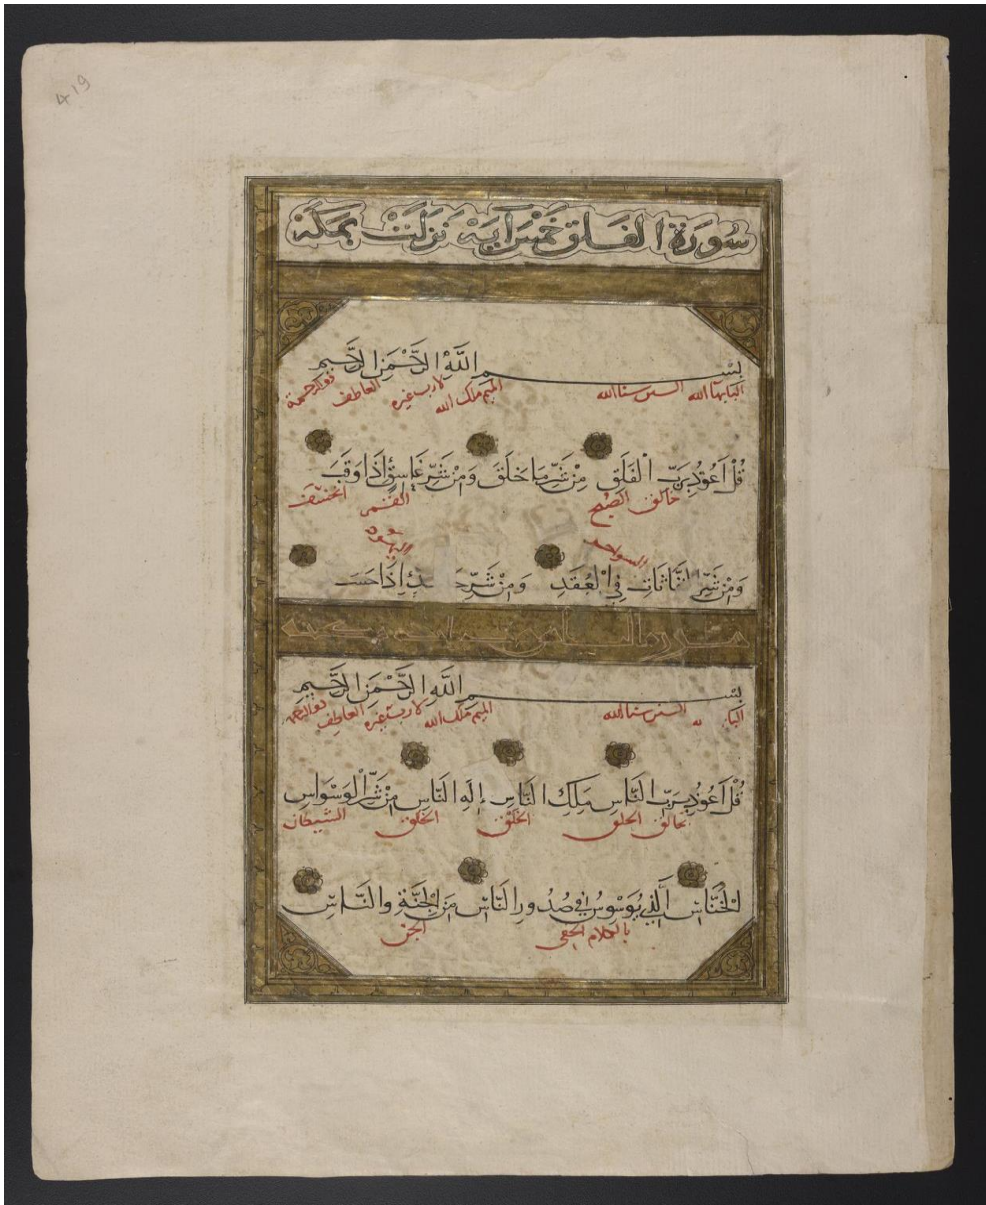 419
سُورَةُ الفَلَق خَمْسُ آيَة نَزَلَتْ بِمَكَّة
بِسْمِ اللَّهِ الرَّحْمَنِ الرَّحِيمِ
البا بها الله السين سنا الله الميم ملك الله لا رب غيره العاطف ذو الرحمة
قُلْ أَعُوذُ بِرَبِّ الْفَلَقِ مِنْ شَرِّ مَا خَلَقَ وَمِنْ شَرِّ غَاسِقٍ إِذَا وَقَبَ
خالق الصبح القمر انخسف
السواحر اليهود
وَمِنْ شَرِّ النَّفَّاثَاتِ فِي الْعُقَدِ وَمِنْ شَرِّ حَاسِدٍ إِذَا حَسَدَ
سورة الناس
بِسْمِ اللَّهِ الرَّحْمَنِ الرَّحِيمِ
البا السين سنا الله الميم ملك الله لا رب غيره العاطف ذو الرحمة
قُلْ أَعُوذُ بِرَبِّ النَّاسِ مَلِكِ النَّاسِ إِلَهِ النَّاسِ مِنْ شَرِّ الْوَسْوَاسِ
بخالق الخلق الخلق الخلق الشيطان
الْخَنَّاسِ الَّذِي يُوَسْوِسُ فِي صُدُورِ النَّاسِ مِنَ الْجِنَّةِ وَالنَّاسِ
بالكلام الخفي الجن